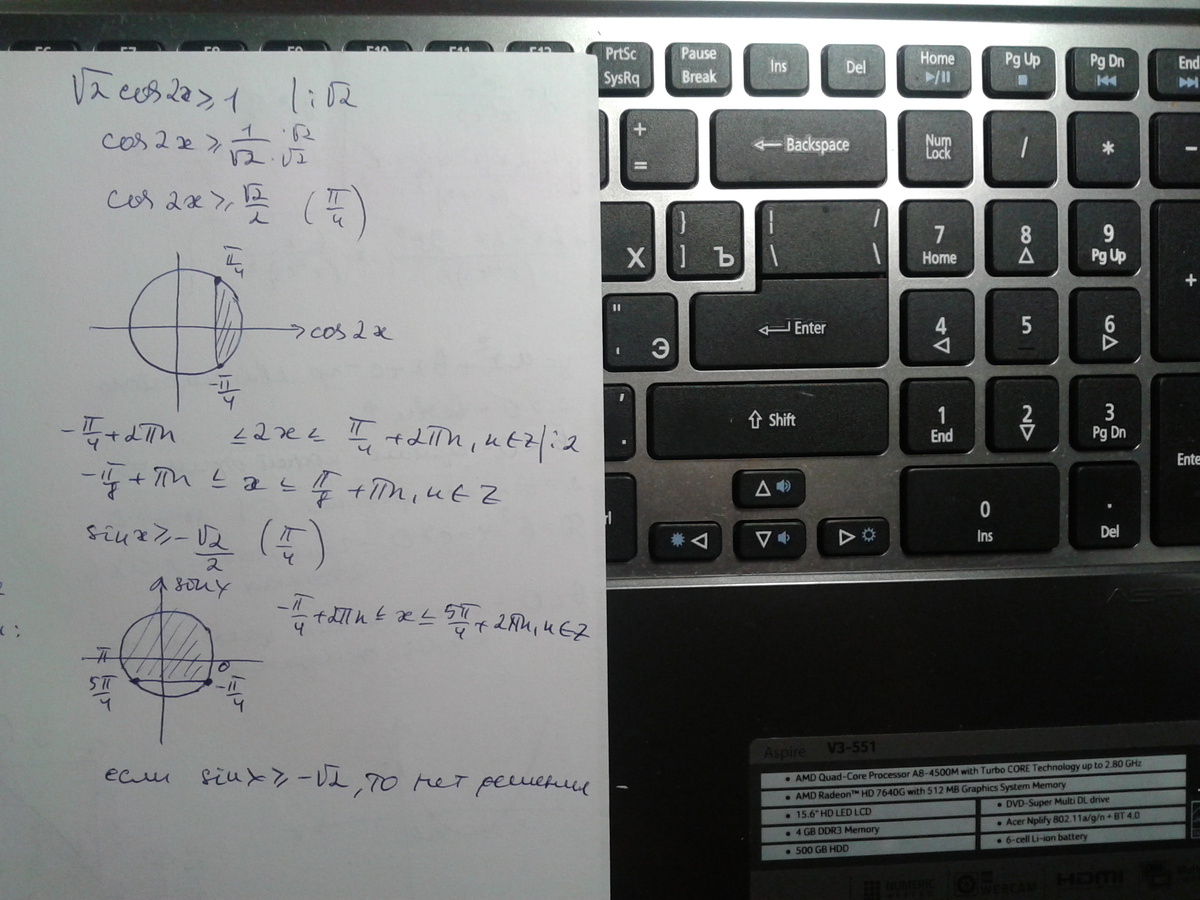 √2 cos2x ≥ 1 | : √2
cos 2x ≥ 1/√2 · √2/√2
cos 2x ≥ √2/2 (π/4)
π/4
cos2x
-π/4
-π/4 + 2πn ≤ 2x ≤ π/4 + 2πn, n ∈ Z | : 2
-π/8 + πn ≤ x ≤ π/8 + πn, n ∈ Z
sinx ≥ -√2/2 (π/4)
sinx
-π/4 + 2πn ≤ x ≤ 5π/4 + 2πn, n ∈ Z
π 0
5π/4 -π/4
если sinx ≥ -√2, то нет решения
F6 F7 F8 F9 F10 F11 F12
PrtSc SysRq
Pause Break
Ins
Del
Home
Pg Up
Pg Dn
End
+ =
Backspace
Num Lock
/
*
-
Х
} ] Ъ
| \ / \
7 Home
8
9 Pg Up
+
" ' Э
Enter
4
5
6
, .
Shift
1 End
2
3 Pg Dn
Enter
0 Ins
. Del
Aspire V3-551
• AMD Quad-Core Processor A8-4500M with Turbo CORE Technology up to 2.80 GHz
• AMD Radeon™ HD 7640G with 512 MB Graphics System Memory
• 15.6" HD LED LCD
• DVD-Super Multi DL drive
• 4 GB DDR3 Memory
• Acer Nplify 802.11a/g/n + BT 4.0
• 500 GB HDD
• 6-cell Li-ion battery
NUMERIC
WEBCAM
HDMI